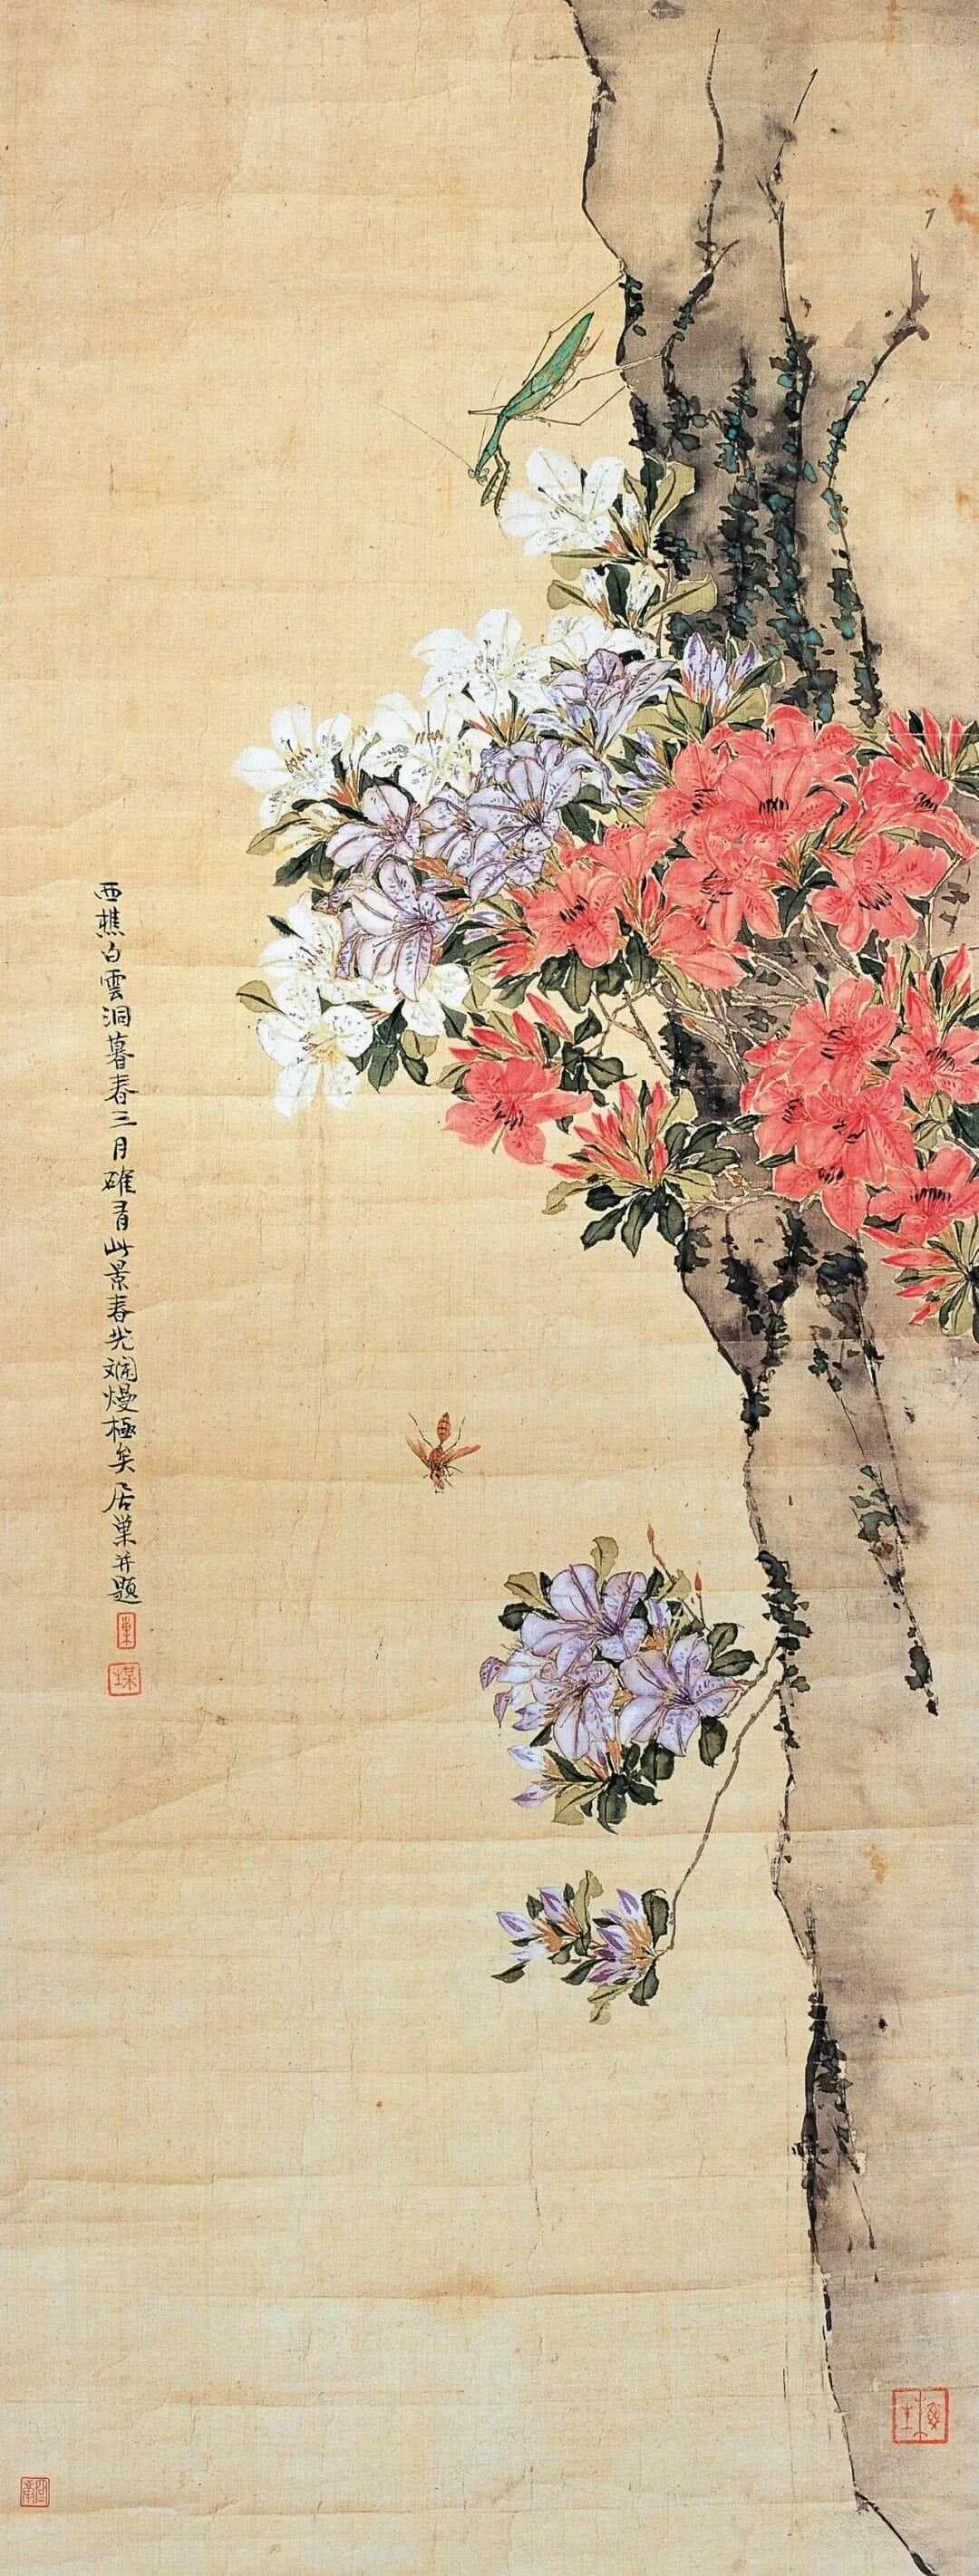 西樵白雲洞暮春三月確有此景春光斓熳極矣居巢并題